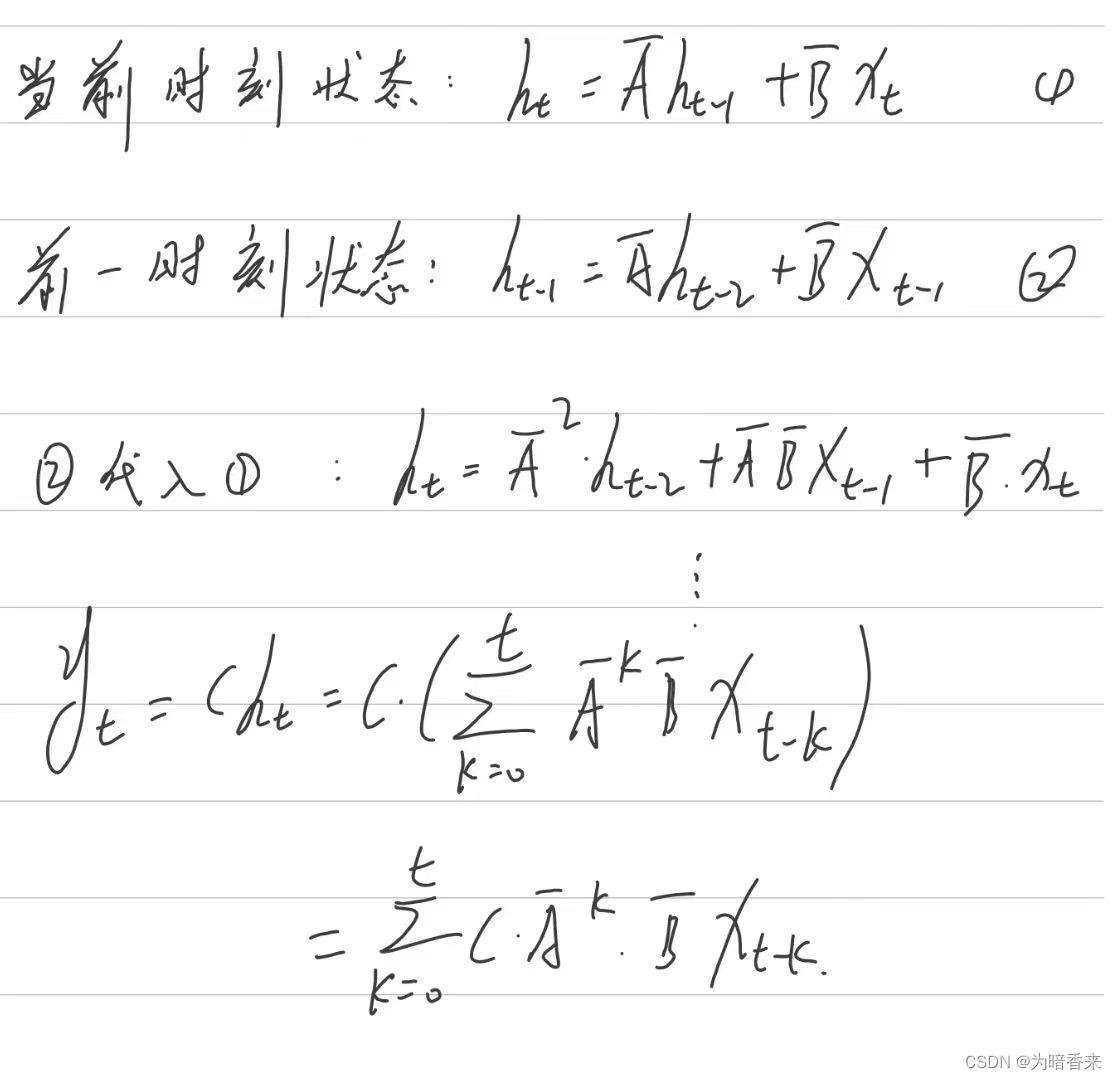 当前时刻状态: hₜ = A̅hₜ₋₁ + B̅xₜ ①
前一时刻状态: hₜ₋₁ = A̅hₜ₋₂ + B̅xₜ₋₁ ②
②代入① : hₜ = A̅²·hₜ₋₂ + A̅B̅xₜ₋₁ + B̅·xₜ
⋮
yₜ = Chₜ = C·(∑_{k=0}^{t} A̅ᵏB̅x_{t-k})
= ∑_{k=0}^{t} C·A̅ᵏ·B̅x_{t-k}.
CSDN @为暗香来